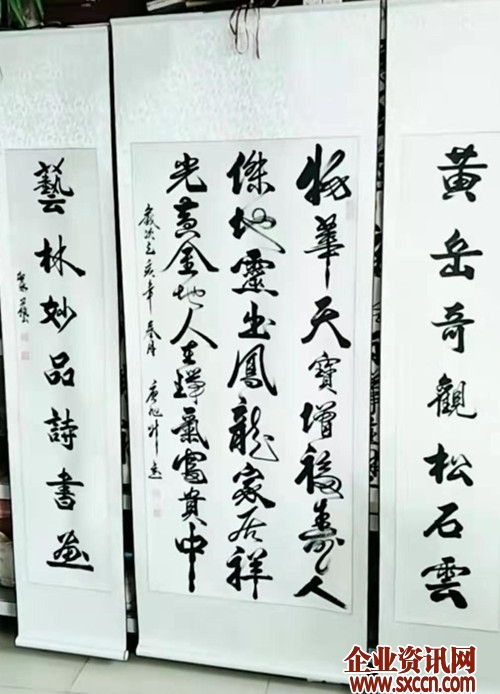 黄岳奇觀松石雲
物華天寶增福壽人
傑地靈出鳳龍家居祥
光黄金地人在瑞氣富貴中
歲次己亥年春月
藝林妙品詩書畫
企业资讯网
www.sxccn.com